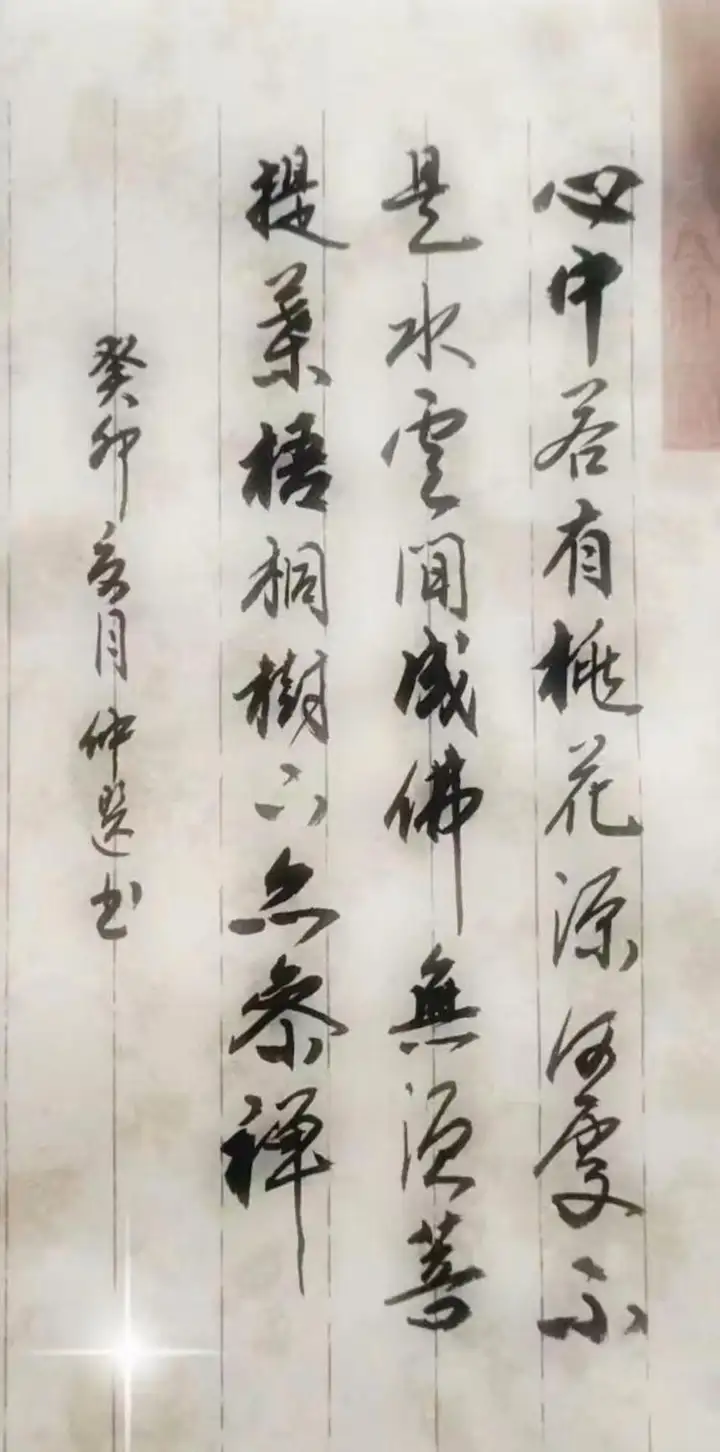 心中若有桃花源何處不
是水雲間成佛無須菩
提葉梧桐樹下亦參禪
癸卯亥月仲選书